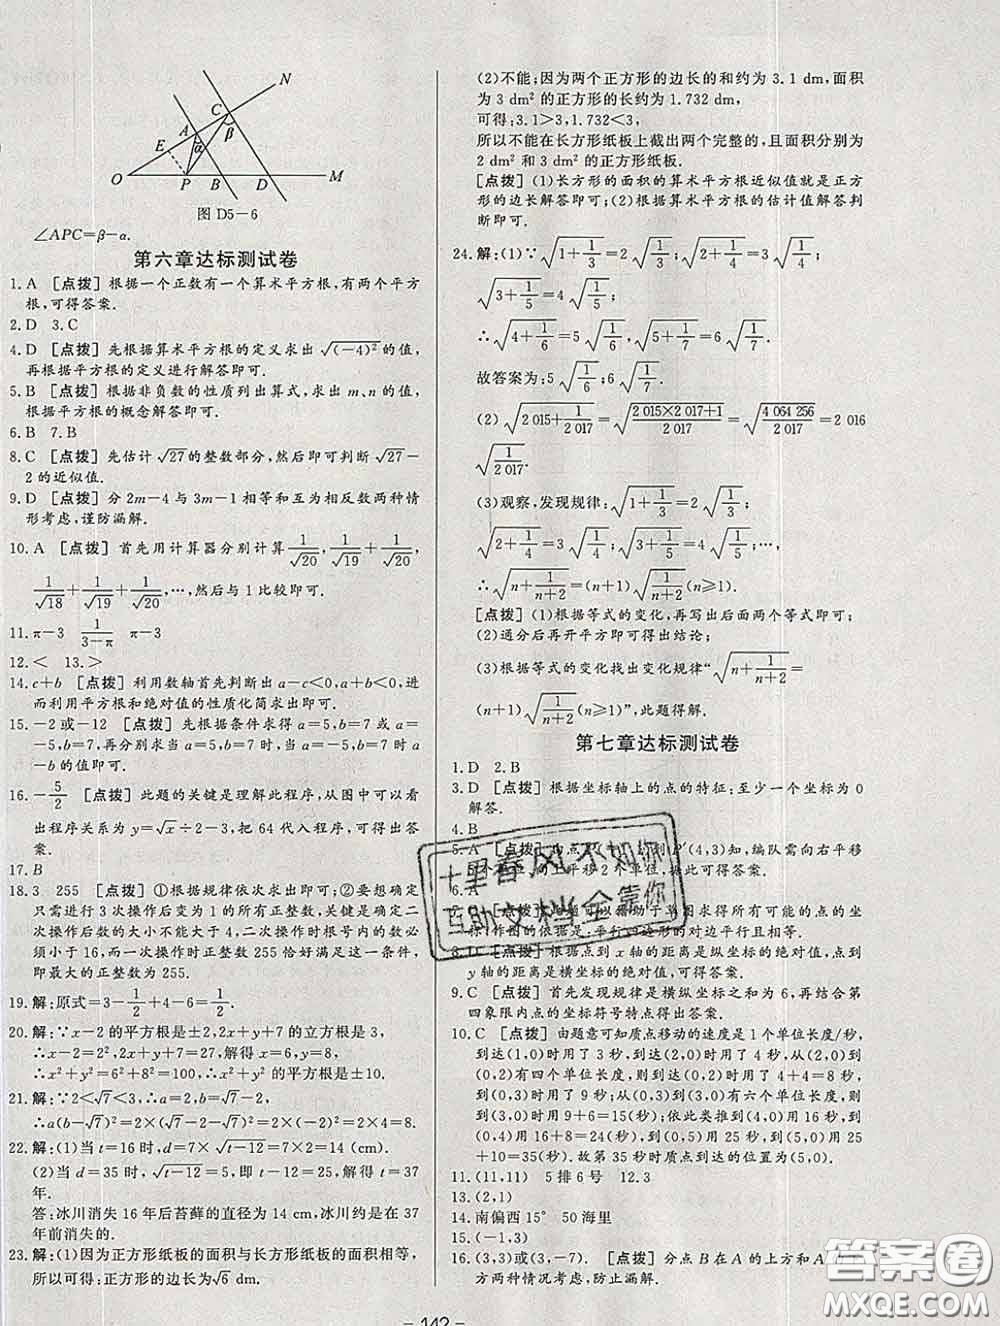 N
C
A
β
E
α
O
P
B
D
M
图 D5-6
∠APC=β-α.
第六章达标测试卷
1. A [点拨] 根据一个正数有一个算术平方根,有两个平方
根,可得答案.
2. D 3. C
4. D [点拨] 先根据算术平方根的定义求出 √(-4)² 的值,
再根据平方根的定义进行解答即可.
5. B [点拨] 根据非负数的性质列出算式,求出 m、n 的值,
根据平方根的概念解答即可.
6. B 7. B
8. C [点拨] 先估计 √27 的整数部分,然后即可判断 √27-
2 的近似值.
9. D [点拨] 分 2m-4 与 3m-1 相等和互为相反数两种情
形考虑,谨防漏解.
10. A [点拨] 首先用计算器分别计算 1/√20, 1/√19+1/√20,
1/√18+1/√19+1/√20,…,然后与 1 比较即可.
11. π-3 1/(3-π)
12. < 13. >
14. c+b [点拨] 利用数轴首先判断出 a-c<0,a+b<0,进
而利用平方根和绝对值的性质化简求出即可.
15. -2 或-12 [点拨] 先根据条件求得 a=5,b=7 或 a=
-5,b=7,再分别求当 a=5,b=7 时,当 a=-5,b=7 时 a
a-b 的值即可.
16. -5/2 [点拨] 此题的关键是理解此程序,从图中可以看
出程序关系为 y=√x÷2-3,把 64 代入程序,可得出答
案.
17. B
18. 3 255 [点拨] ①根据规律依次求出即可;②要想确定
只需进行 3 次操作后变为 1 的所有正整数,关键是确定二
次操作后数的大小不能大于 4,二次操作时根号内的数必
须小于 16,而一次操作时正整数 255 恰好满足这一条件,
即最大的正整数为 255.
19. 解:原式=3-1/2+4-6=1/2.
20. 解:∵x-2 的平方根是±2,2x+y+7 的立方根是 3,
∴x-2=2²,2x+y+7=27,解得 x=6,y=8,
∴x²+y²=6²+8²=100,∴x²+y² 的平方根是±10.
21. 解:∵2<√7<3,∴a=2,b=√7-2,
∴a(b-√7)²=2×(√7-2-√7)²=2×(-2)²=2×4=8.
22. 解:(1)当 t=16 时,d=7×√(t-12)=7×2=14 (cm).
(2)当 d=35 时,√(t-12)=5,即 t-12=25,解得 t=37
年.
答:冰川消失 16 年后苔藓的直径为 14 cm,冰川约是在 37
年前消失的.
23. 解:(1)因为正方形纸板的面积与长方形纸板的面积相等,
所以可得:正方形的边长为√6 dm.
(2)不能;因为两个正方形的边长的和约为 3.1 dm,面积
为 3 dm² 的正方形的长约为 1.732 dm,
可得:3.1>3,1.732<3,
所以不能在长方形纸板上截出两个完整的,且面积分别为
2 dm² 和 3 dm² 的正方形纸板.
[点拨] (1)长方形的面积的算术平方根近似值就是正方
形的边长解答即可;(2)根据算术平方根的估计值解答判
断即可.
24. 解:(1)∵√(1+1/3)=2√(1/3),√(2+1/4)=3√(1/4),
√(3+1/5)=4√(1/5);
∴√(4+1/6)=5√(1/6),√(5+1/7)=6√(1/7).
故答案为:5√(1/6);6√(1/7).
(2)√(2 015+1/2 017)=√((2 015×2 017+1)/2 017)=√(4 064 256/2 017)=2 016
√(1/2 017).
(3)观察,发现规律:√(1+1/3)=2√(1/3),
√(2+1/4)=3√(1/4),√(3+1/5)=4√(1/5),…,
∴√(n+1/(n+2))=(n+1)√(1/(n+2))(n≥1).
[点拨] (1)根据等式的变化,再写出后面两个等式即可;
(2)通分后再开平方即可得出结论;
(3)根据等式的变化找出变化规律“√(n+1/(n+2))=
(n+1)√(1/(n+2))(n≥1)”,此题得解.
第七章达标测试卷
1. D 2. B
3. D [点拨] 根据坐标轴上的点的特征:至少一个坐标为 0
解答.
4. B
5. A [点拨] (4,3)知,编队需向右平移
个单位,据此可得答案.
6. A
[点拨] 求得所有可能的点的坐
标,作图的依据是:平行四边形的对边平行且相等.
8. [点拨] 根据点到 x 轴的距离是纵坐标的绝对值,点到
y 轴的距离是横坐标的绝对值,可得答案.
9. C [点拨] 首先发现规律是横纵坐标之和为 6,再结合第
四象限内点的坐标符号特点得出答案.
10. C [点拨] 由题意可知质点移动的速度是 1 个单位长度/秒,
到达(1,0)时用了 3 秒,到达(2,0)时用了 4 秒,从(2,0)到
(0,2)有四个单位长度,则到达(0,2)时用了 4+4=8 (秒),
到(0,3)时用了 9 秒;从(0,3)到(3,0)有六个单位长度,则
到(3,0)时用 9+6=15(秒);依此类推到(4,0)用 16 秒,到
(0,4)用 16+8=24(秒),到(0,5)用 25 秒,到(5,0)用 25
+10=35(秒).故第 35 秒时质点到达的位置为(5,0).
11. (11,11) 5 排 6 号 12. 3
13. (2,1)
14. 南偏西 15° 50 海里
15. (-1,3)
16. (3,3)或(3,-7). [点拨] 分点 B 在 A 的上方和 A
方两种情况考虑,防止漏解.
十里春风不如你
互助文档全靠你
答案圈
MXQE.COM
- 142 -